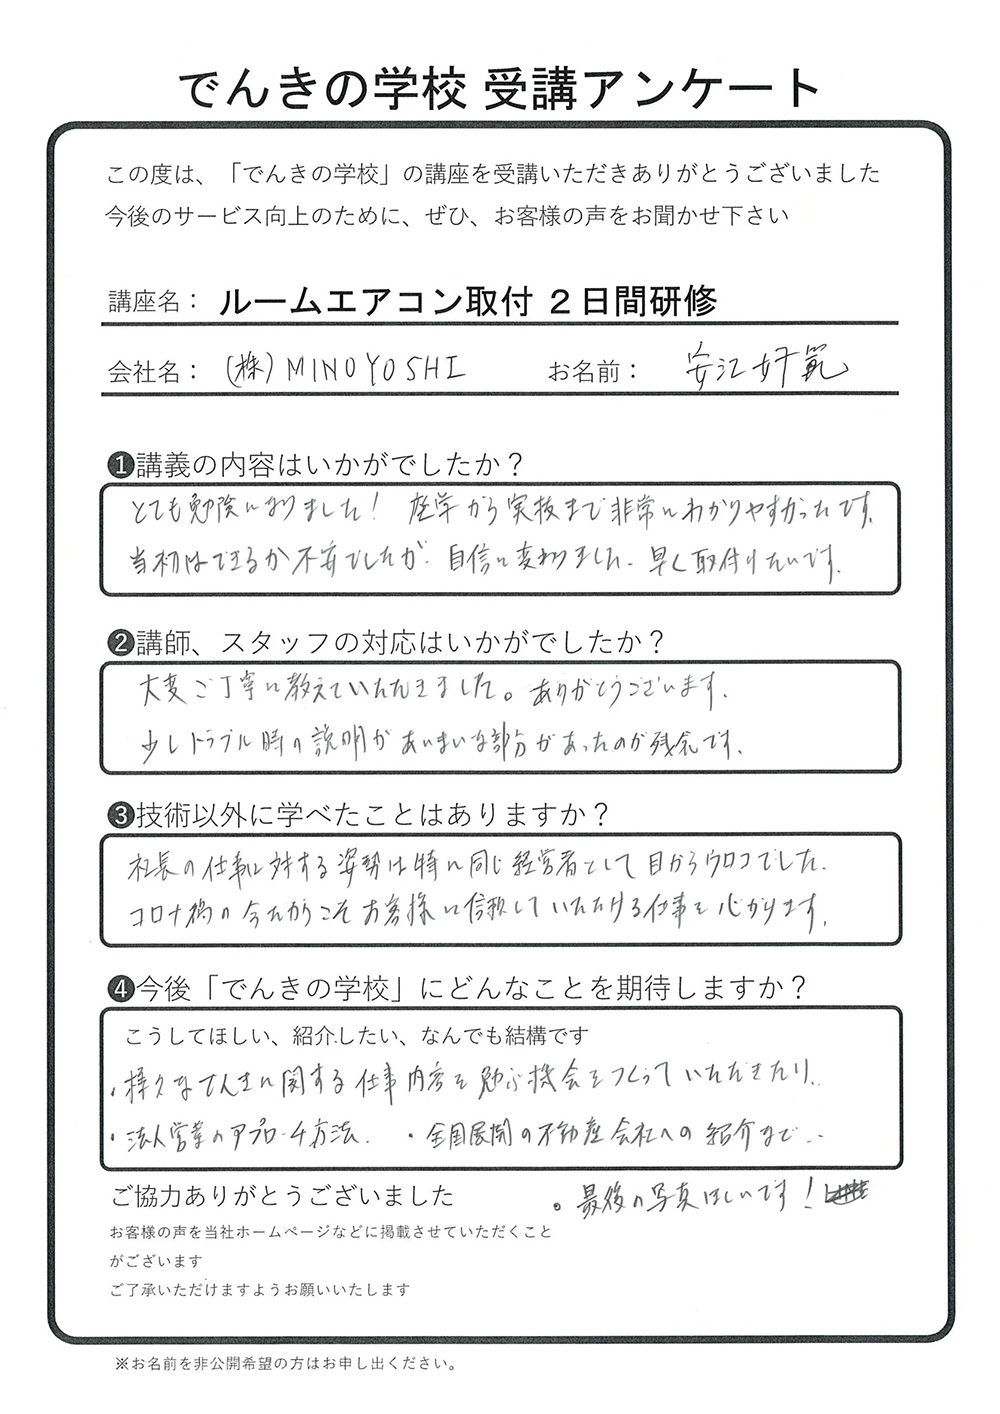 でんきの学校 受講アンケート
この度は、「でんきの学校」の講座を受講いただきありがとうございました
今後のサービス向上のために、ぜひ、お客様の声をお聞かせ下さい
講座名： ルームエアコン取付 ２日間研修
会社名： (株)MINOYOSHI お名前： 安江好範
❶講義の内容はいかがでしたか？
とても勉強になりました! 座学から実技まで非常にわかりやすかったです。
当初はできるか不安でしたが、自信に変わりました。早く取付けたいです。
❷講師、スタッフの対応はいかがでしたか？
大変ご丁寧に教えていただきました。ありがとうございます。
少しトラブル時の説明があいまいな部分があったのが残念です。
❸技術以外に学べたことはありますか？
社長の仕事に対する姿勢は特に同じ経営者として目からウロコでした。
コロナ禍の今だからこそお客様に信頼していただける仕事を心がけます。
❹今後「でんきの学校」にどんなことを期待しますか？
こうしてほしい、紹介したい、なんでも結構です
・様々なでんきに関する仕事内容を勉ぶ機会をつくっていただきたり。
・法人営業のアプローチ方法。 ・全国展開の不動産会社への紹介まで...
ご協力ありがとうございました
。最後の写真ほしいです!
お客様の声を当社ホームページなどに掲載させていただくこと
がございます
ご了承いただけますようお願いいたします
※お名前を非公開希望の方はお申し出ください。